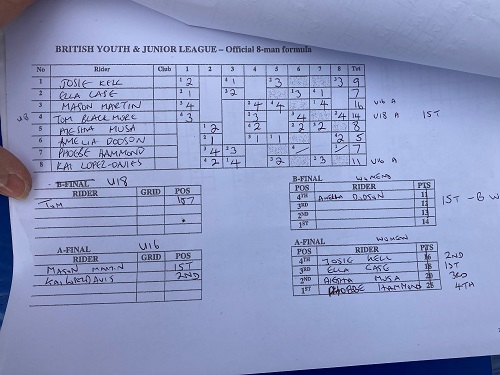 BRITISH YOUTH & JUNIOR LEAGUE – Official 8-man formula
No Rider Club 1 2 3 4 5 6 7 8 Tot
1 JOSIE KELL 2 1 3 3 9
2 ELLA CASE 1 2 3 1 7
3 MASON MARTIN 4 4 4 4 16 U16 A
U18 4 TOM BLACKMORE 3 3 4 4 14 U18 A 1ST
5 AIESHA MUSA 2 2 2 2 8
6 AMELIA DODSON 1 1 1 2 5
7 PHOEBE HAMMOND 4 3 7
8 KAI LOPEZ-DAVIES 2 4 2 3 11 U16 A
B-FINAL U18
RIDER GRID POS
TOM 1ST
A-FINAL U16
RIDER GRID POS
MASON MARTIN 1ST
2ND
B-FINAL WOMENS
POS RIDER PTS
4TH DODSON 11 1ST - B W
3RD 12
2ND 13
1ST 14
A-FINAL WOMEN
POS RIDER PTS
4TH JOSIE KELL 16 2ND
3RD ELLA CASE 18 1ST
2ND AIESHA MUSA 20 3RD
1ST PHOEBE HAMMOND 4TH